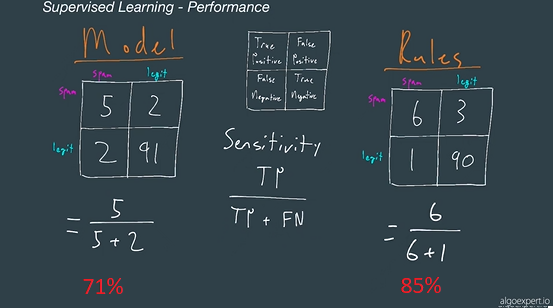 Supervised Learning - Performance
Model
spam legit
spam 5 2
legit 2 91
= 5
5+2
71%
True Positive False Positive
False Negative True Negative
Sensitivity
TP
TP + FN
Rules
spam legit
spam 6 3
legit 1 90
= 6
6+1
85%
algoexpert.io